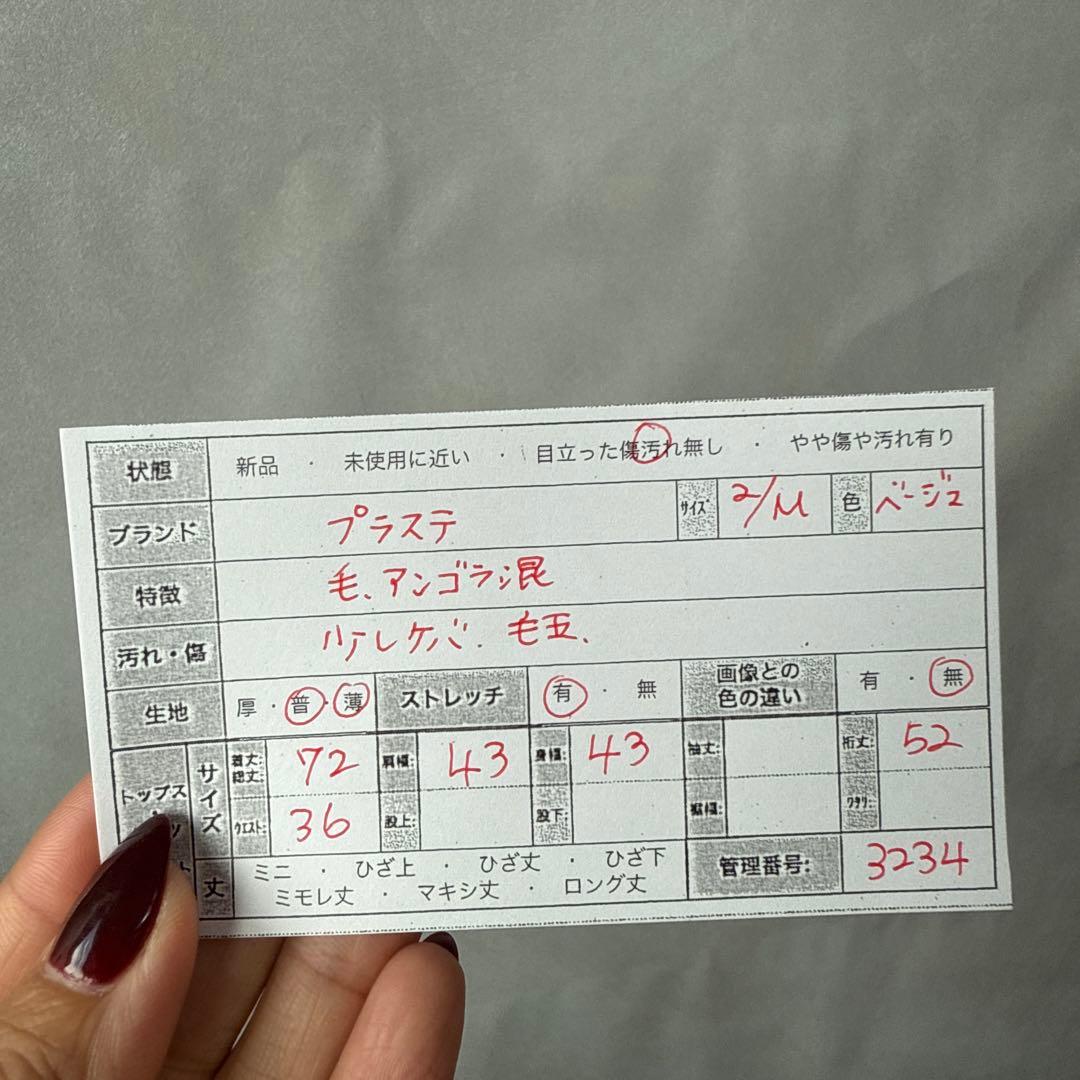 状態 新品 ・ 未使用に近い ・ 目立った傷汚れ無し ・ やや傷や汚れ有り
ブランド プラステ サイズ 2/M 色 ベージュ
特徴 毛、アンゴラ混
汚れ・傷 少しケバ、毛玉、
生地 厚・普・薄 ストレッチ 有 ・ 無 画像との色の違い 有 ・ 無
トップス サイズ 着丈:総丈: 72 肩幅: 43 身幅: 43 袖丈: 裄丈: 52
ウエスト: 36 股上: 股下: 裾幅: ワタリ:
丈 ミニ ・ ひざ上 ・ ひざ丈 ・ ひざ下
ミモレ丈 ・ マキシ丈 ・ ロング丈
管理番号: 3234